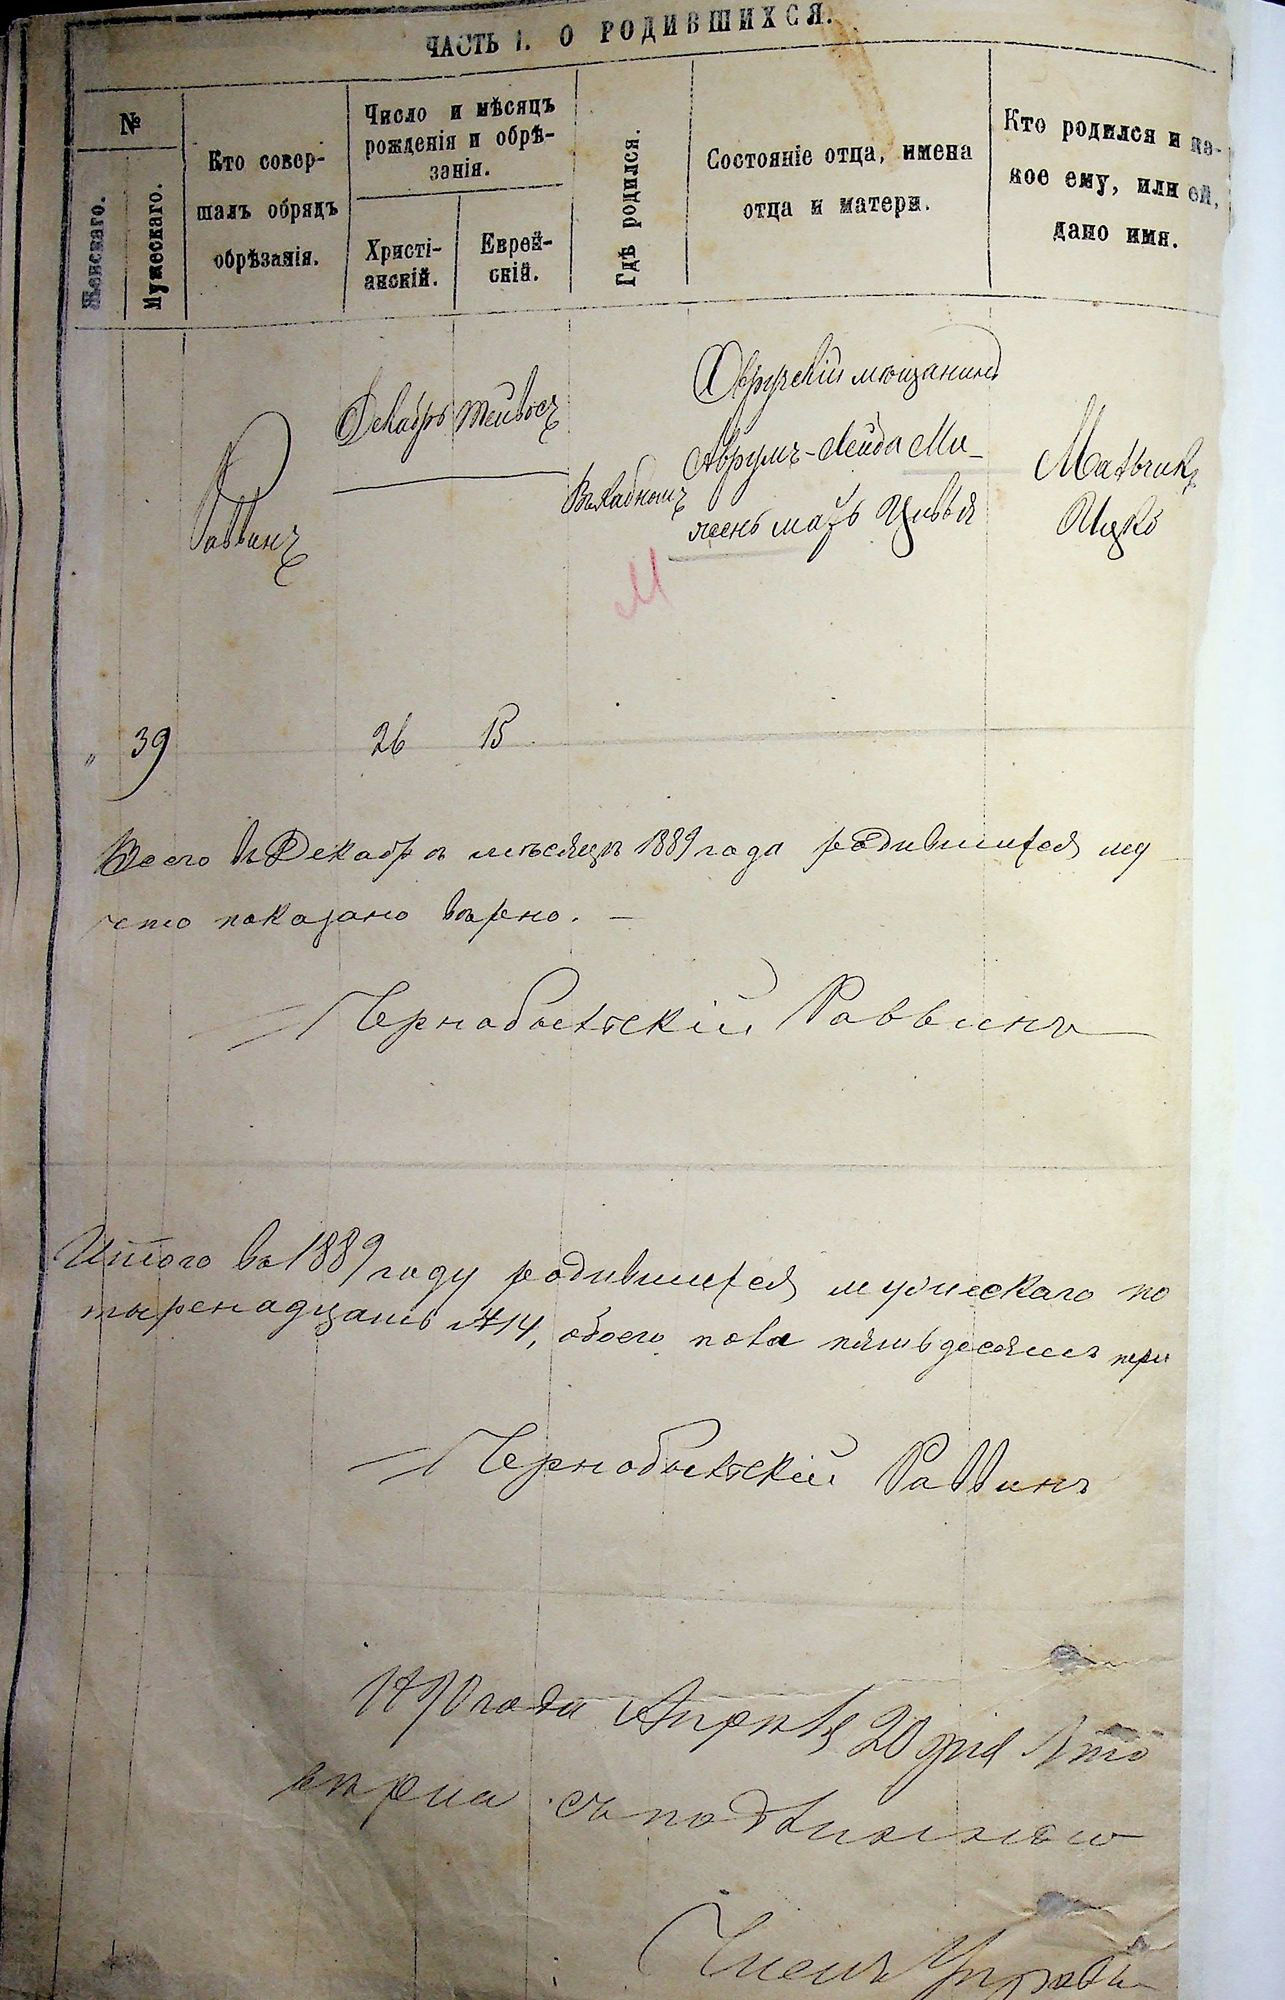 ЧАСТЬ I. О РОДИВШИХСЯ.
№
Женскаго.
Мужескаго.
Кто совер-
шалъ обрядъ
обрѣзанія.
Число и мѣсяцъ
рожденія и обрѣ-
занія.
Христі-
анскій.
Еврей-
скій.
Гдѣ родился.
Состояніе отца, имена
отца и матери.
Кто родился и ка-
кое ему, или ей,
дано имя.
Раввинъ
Декабрь
Тейвось
Овручскій мещанинъ
Аврумъ-Лейба Ми-
мать Цивья
Мальчикъ
Ицко
М
" 39 26 15
Всего въ Декабрѣ месяцѣ 1889 года родившихся му
что показано вѣрно. —
Чернобыльскій Раввинъ
Итого въ 1889 году родившихся мужескаго по
тыренадцать №14, обоего пола пятьдесятъ три
Чернобыльскій Раввинъ
1890 года Апрѣля 20 дня Что
вѣрна съ подлинною
Членъ Управы